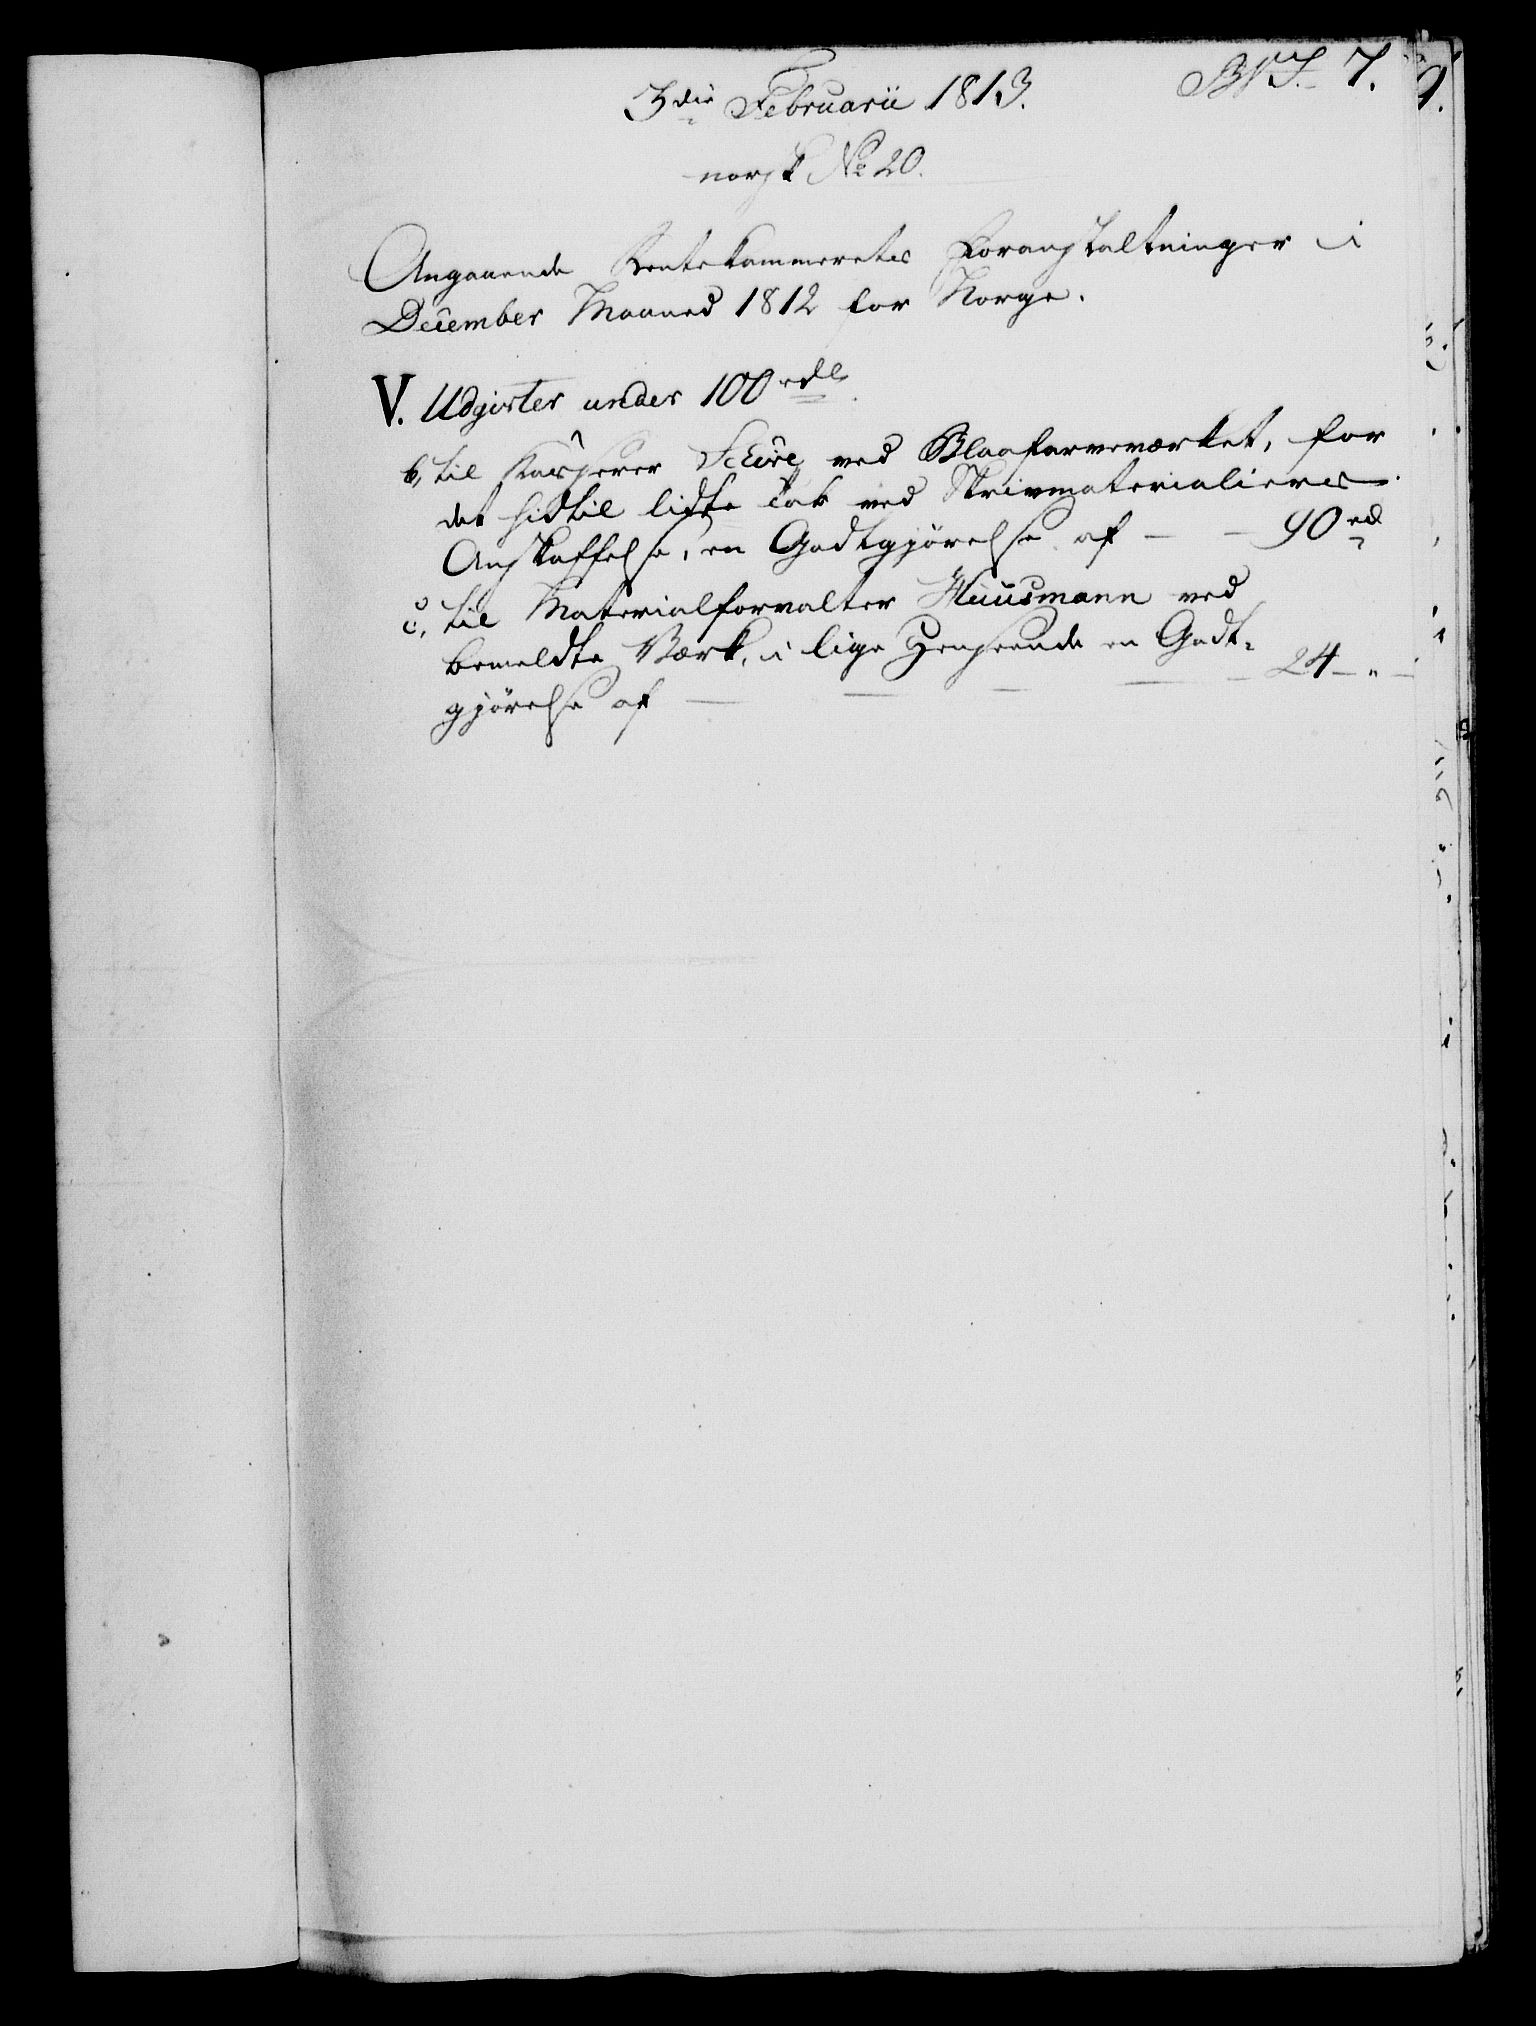 3die Februarii 1813.
7.
norsk No 20.
Angaaende Rentekammerets Foranstaltninger i
December Maaned 1812 for Norge.
V. Udgivter under 100 rdl
b, til Kasserer ved Blaafarveværket, for
det hidtil lidte Tab ved Skrivmaterialiers
Anskaffelse, en Godtgjörelse af — — 90 rd
c, til Materialforvalter Huusmann ved
bemeldte Værk, i lige Henseende en Godt-
gjörelse af — — — — 24 — " —